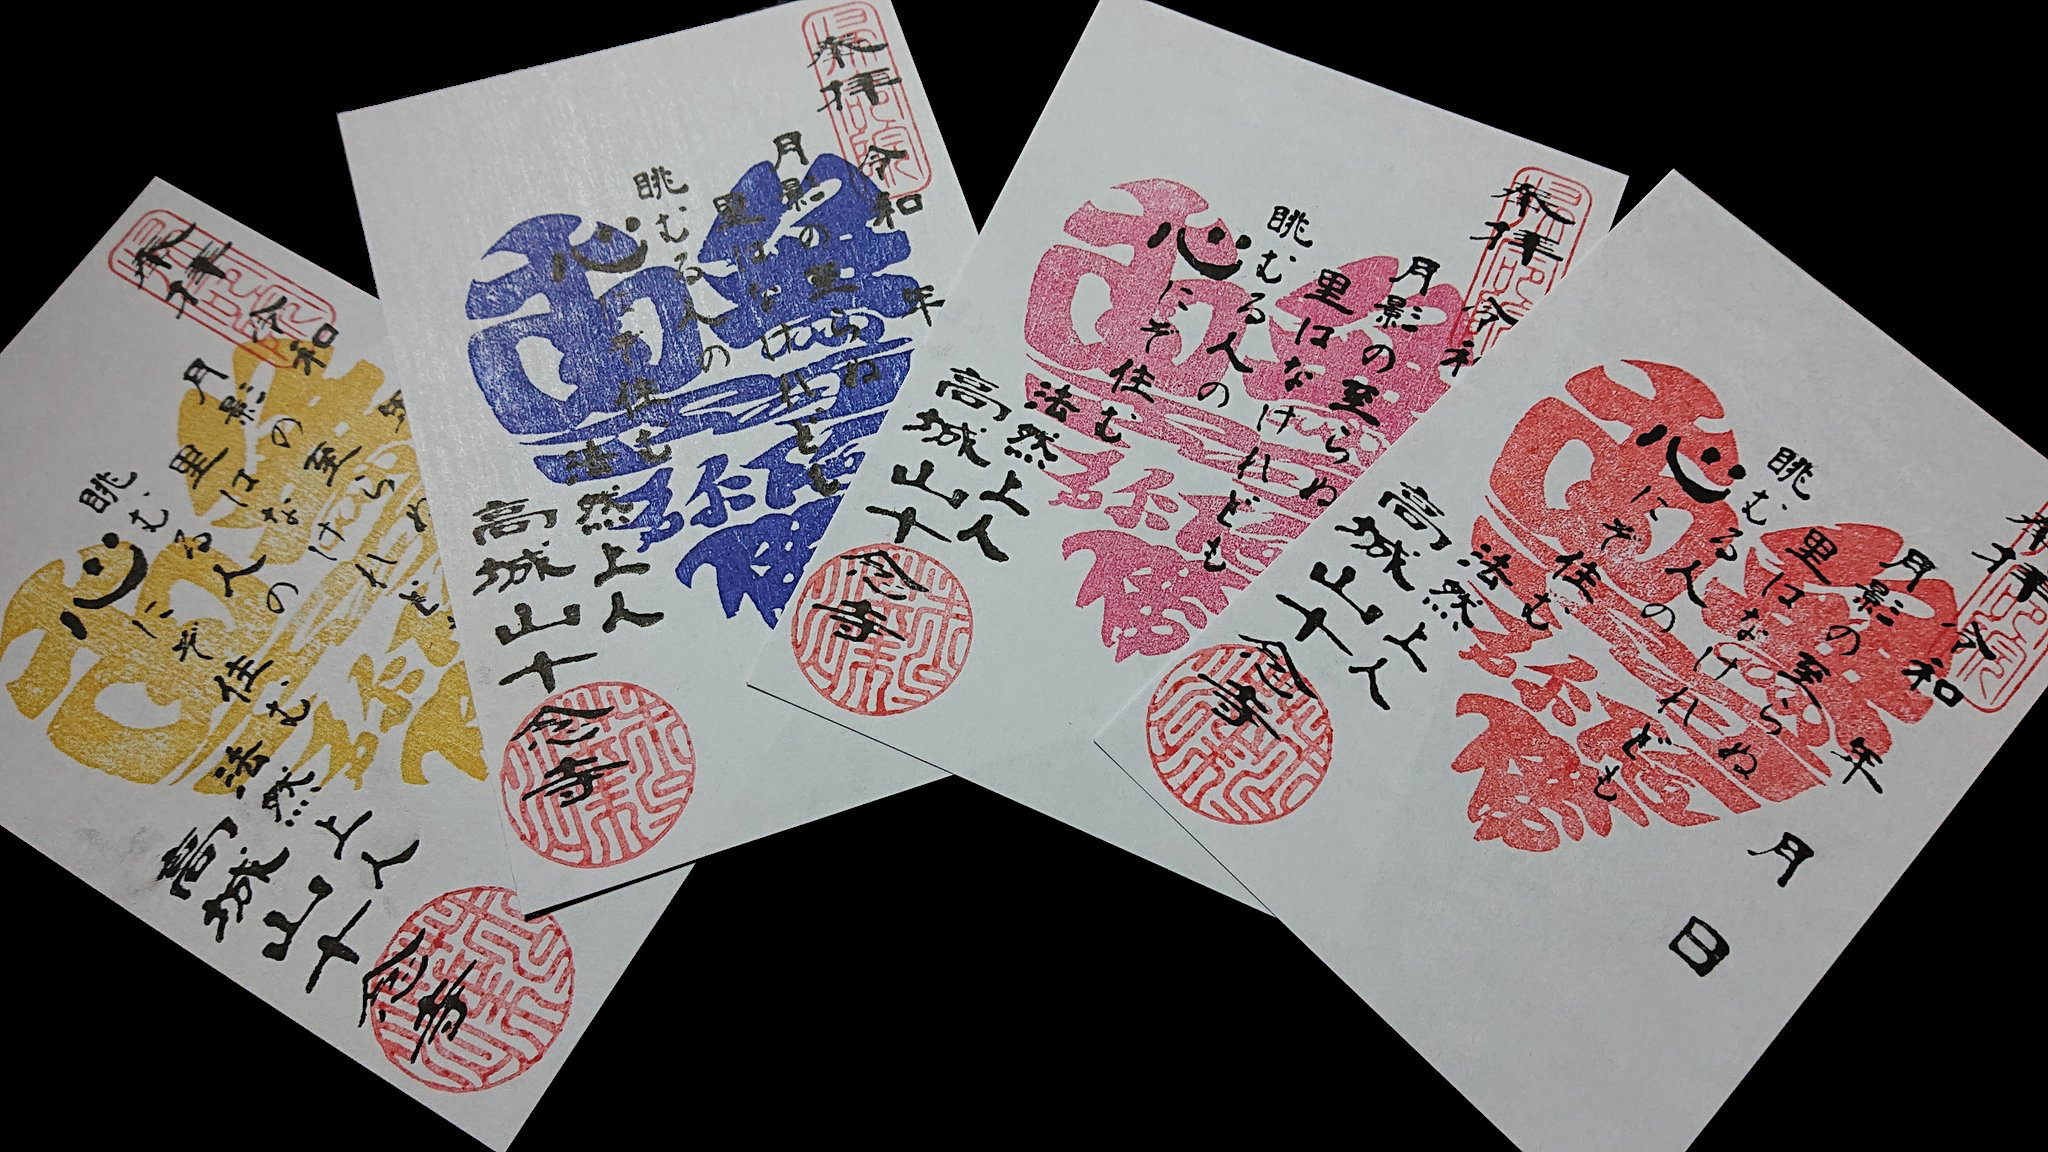 奉拝 令和 年
月影の至らぬ
里はなけれども
眺むる人の
心にぞ住む
法然上人
高城山十念寺
奉拝 令和 年
月影の至らぬ
里はなけれども
眺むる人の
心にぞ住む
法然上人
高城山十念寺
奉拝 令和
月影の至らぬ
里はなけれども
眺むる人の
心にぞ住む
法然上人
高城山十念寺
奉拝 令和 年 月 日
月影の至らぬ
里はなけれども
眺むる人の
心にぞ住む
法然上人
高城山十念寺